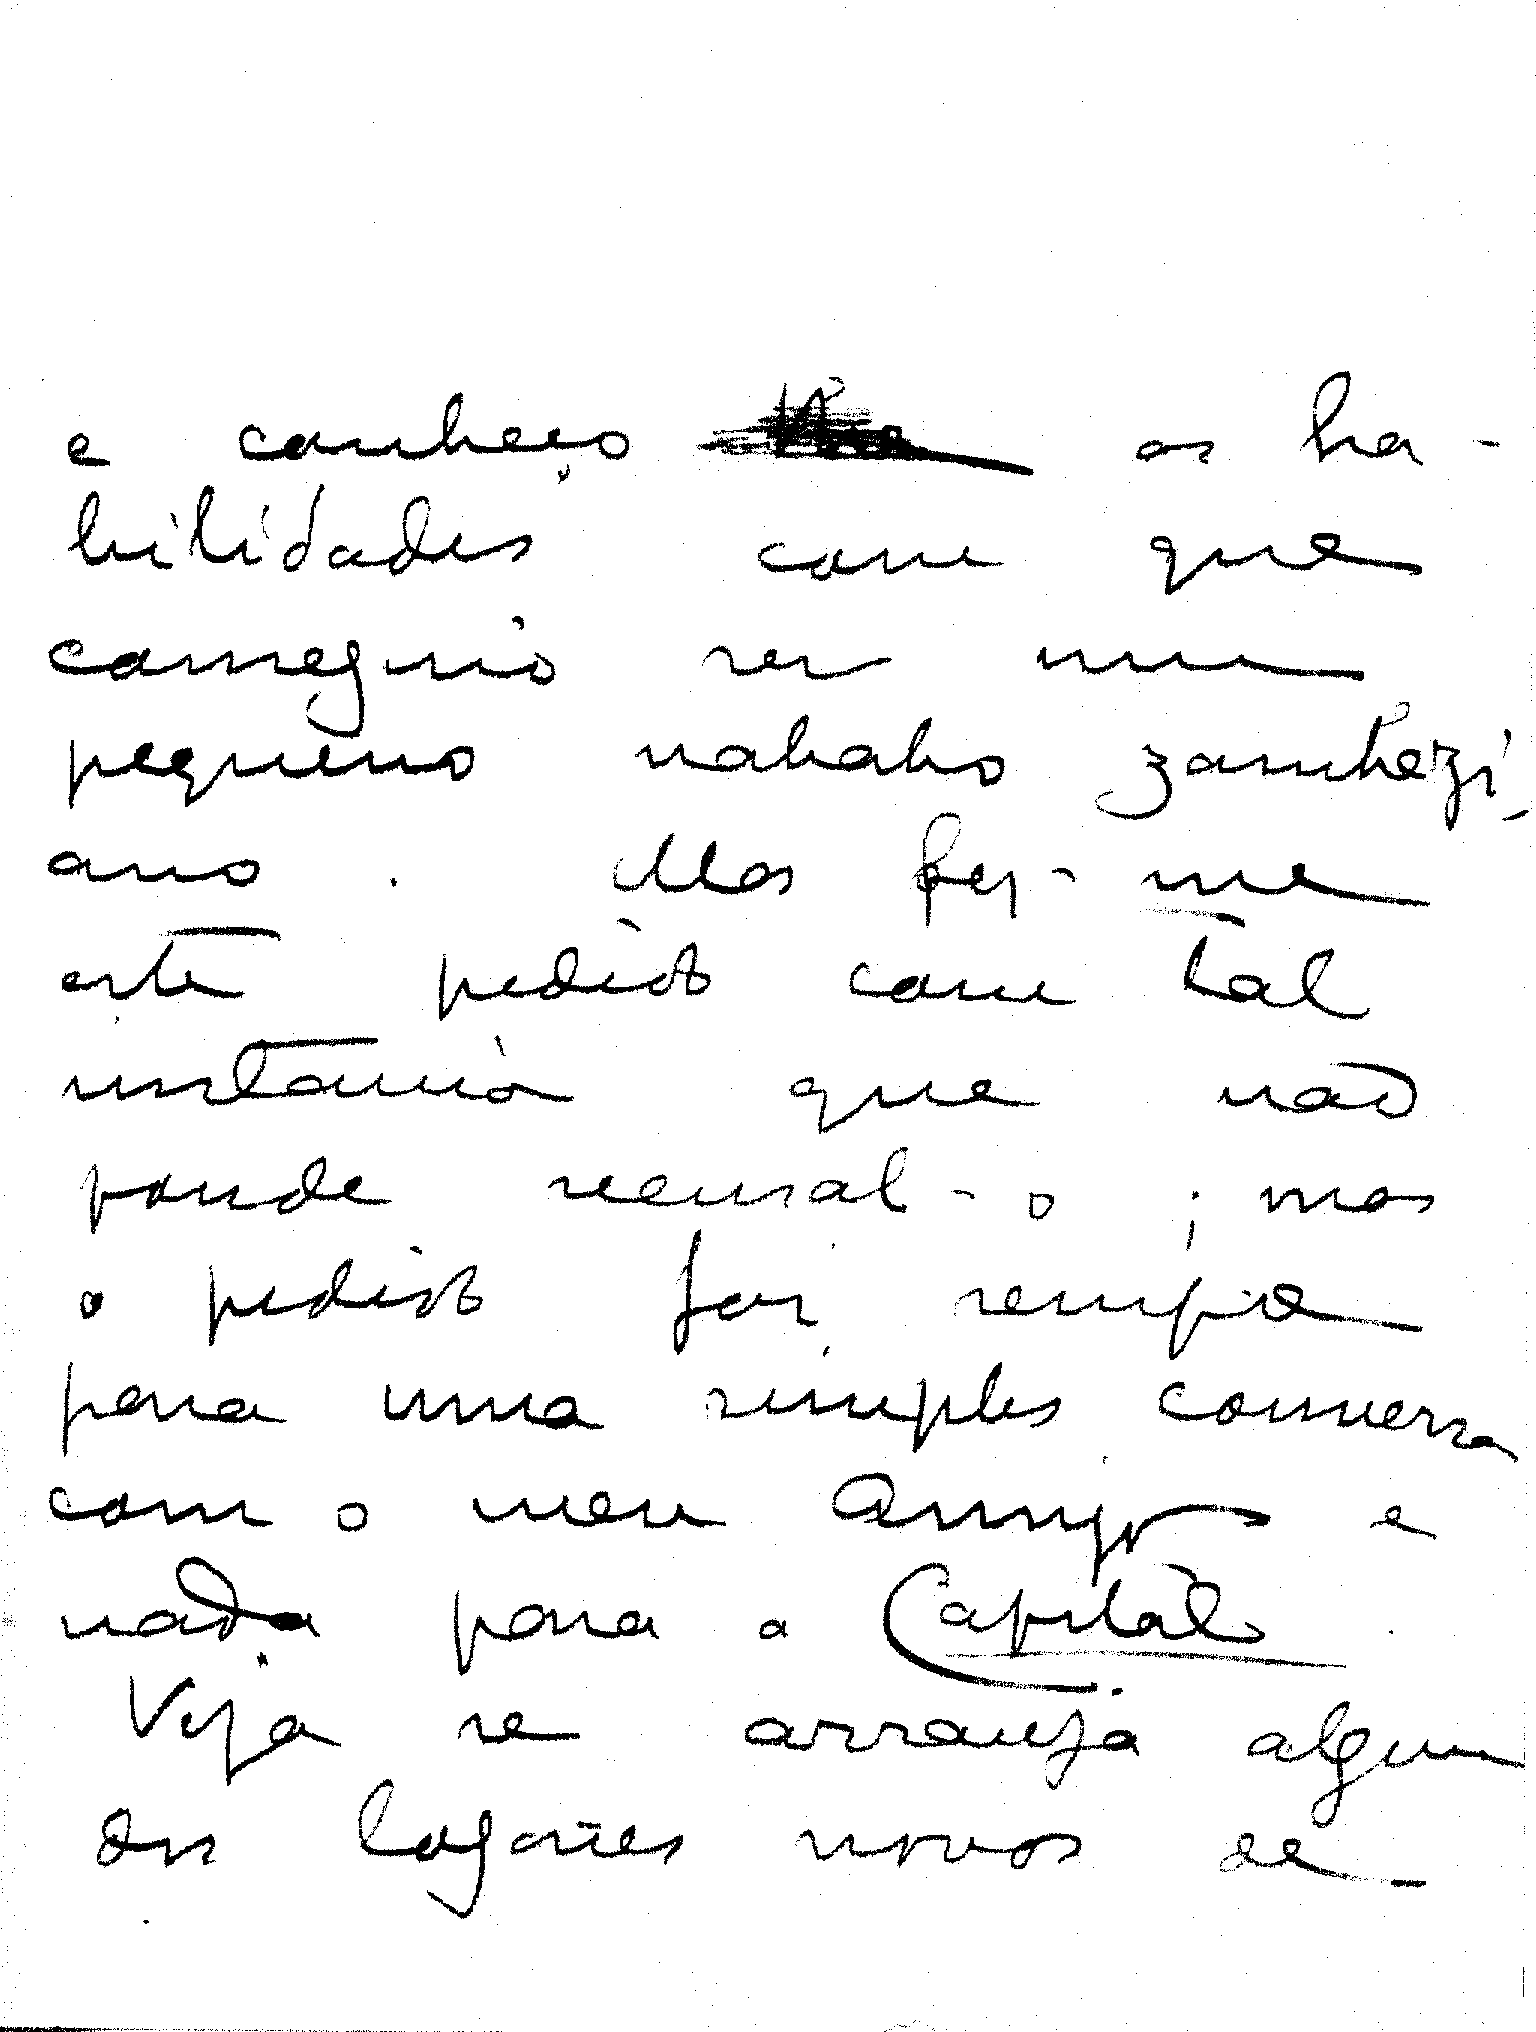 e conheço as ha-
bilidades com que
conseguio ser um
pequeno nababo zambezi-
ano. Mas fez-me
este pedido com tal
instancia que não
poude recusal-o; mas
o pedido foi sempre
para uma simples conversa
com o meu Amigo e
nada para a Capital.
Veja se arranja algum
dos logares novos de